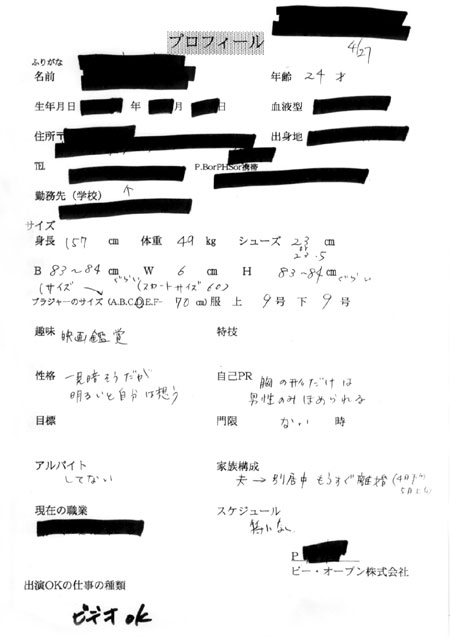 プロフィール
4/27
ふりがな
名前 年齢 24 才
生年月日 年 月 日 血液型
住所〒 出身地
TEL P.BorPHSor携帯
勤務先（学校）
サイズ
身長 157 cm 体重 49 kg シューズ 23 cm
or
23.5
B 83〜84 cm W 6 cm H 83〜84 cm
ぐらい ぐらい
(サイズ (スカートサイズ 60)
ブラジャーのサイズ (A.B.C.D.E.F- 70 cm) 服 上 9 号 下 9 号
趣味 映画鑑賞 特技
性格 一見暗そうだが
明るいと自分は想う
自己PR 胸の形だけは
男性のみほめられる
目標 門限 ない 時
アルバイト
してない
家族構成
夫→別居中 もうすぐ離婚
現在の職業 スケジュール
特になし
P
ビー・オープン株式会社
出演OKの仕事の種類
ビデオok